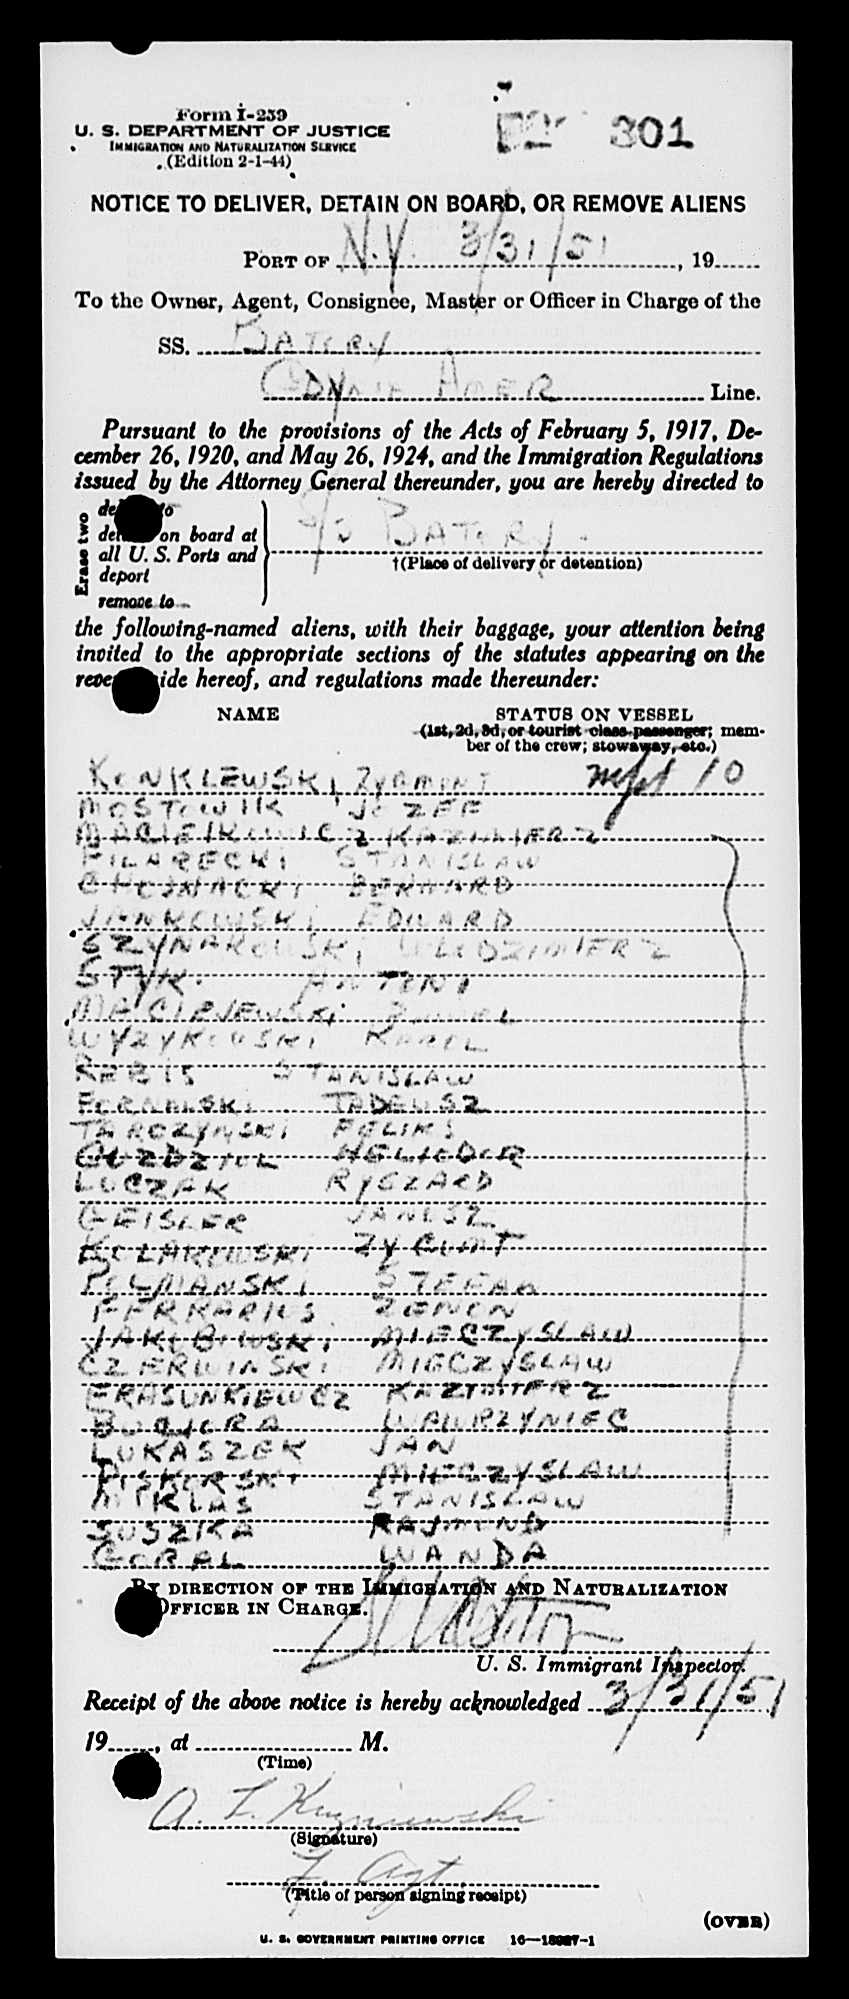 Form I-259
U. S. DEPARTMENT OF JUSTICE
IMMIGRATION AND NATURALIZATION SERVICE
(Edition 2-1-44)
301
NOTICE TO DELIVER, DETAIN ON BOARD, OR REMOVE ALIENS
PORT OF N.Y. 3/31/51, 19
To the Owner, Agent, Consignee, Master or Officer in Charge of the
SS. BATORY
GDYNIA AMER Line.
Pursuant to the provisions of the Acts of February 5, 1917, De-
cember 26, 1920, and May 26, 1924, and the Immigration Regulations
issued by the Attorney General thereunder, you are hereby directed to
Erase two
to
on board at
all U. S. Ports and
deport
remove to
S/S BATORY.
†(Place of delivery or detention)
the following-named aliens, with their baggage, your attention being
invited to the appropriate sections of the statutes appearing on the
side hereof, and regulations made thereunder:
NAME STATUS ON VESSEL
(1st, 2d, 3d, or tourist class passenger; mem-
ber of the crew; stowaway, etc.)
KONKLEWSKI ZYGMONT 10
MOSTOWIK JOZEF
MACIEIKOWICZ KAZIMIERZ
FILARECKI STANISLAW
CHOJNACKI BERNARD
JANKOWSKI EDWARD
SZYNAKOWSKI WLODZIMIERZ
STYK ANTONI
MACIEJEWSKI
WYZYKOWSKI KAROL
REBIS STANISLAW
FORNALSKI TADEUSZ
TAROZYNSKI FELIKS
GUZDZIOL HELIODOR
LUCZAK RYSZARD
GEISLER JANUSZ
KOLAKOWSKI ZYGUMT
POLMANSKI STEFAN
FERRARIUS ZENON
JAKUBOWSKI MIECZYSLAW
CZERWINSKI MIECZYSLAW
FRASUNKIEWICZ KAZIMIERZ
WAWRZYNIEC
LUKASZEK JAN
PISKORSKI MIECZYSLAW
MIKLAS STANISLAW
SUSZKA RAJMUND
GORAL WANDA
BY DIRECTION OF THE IMMIGRATION AND NATURALIZATION
OFFICER IN CHARGE.
U. S. Immigrant Inspector.
Receipt of the above notice is hereby acknowledged 3/31/51
19, at M.
(Time)
A. L. Kuzniewski
(Signature)
Agt.
(Title of person signing receipt)
(OVER)
U. S. GOVERNMENT PRINTING OFFICE 16—18987-1